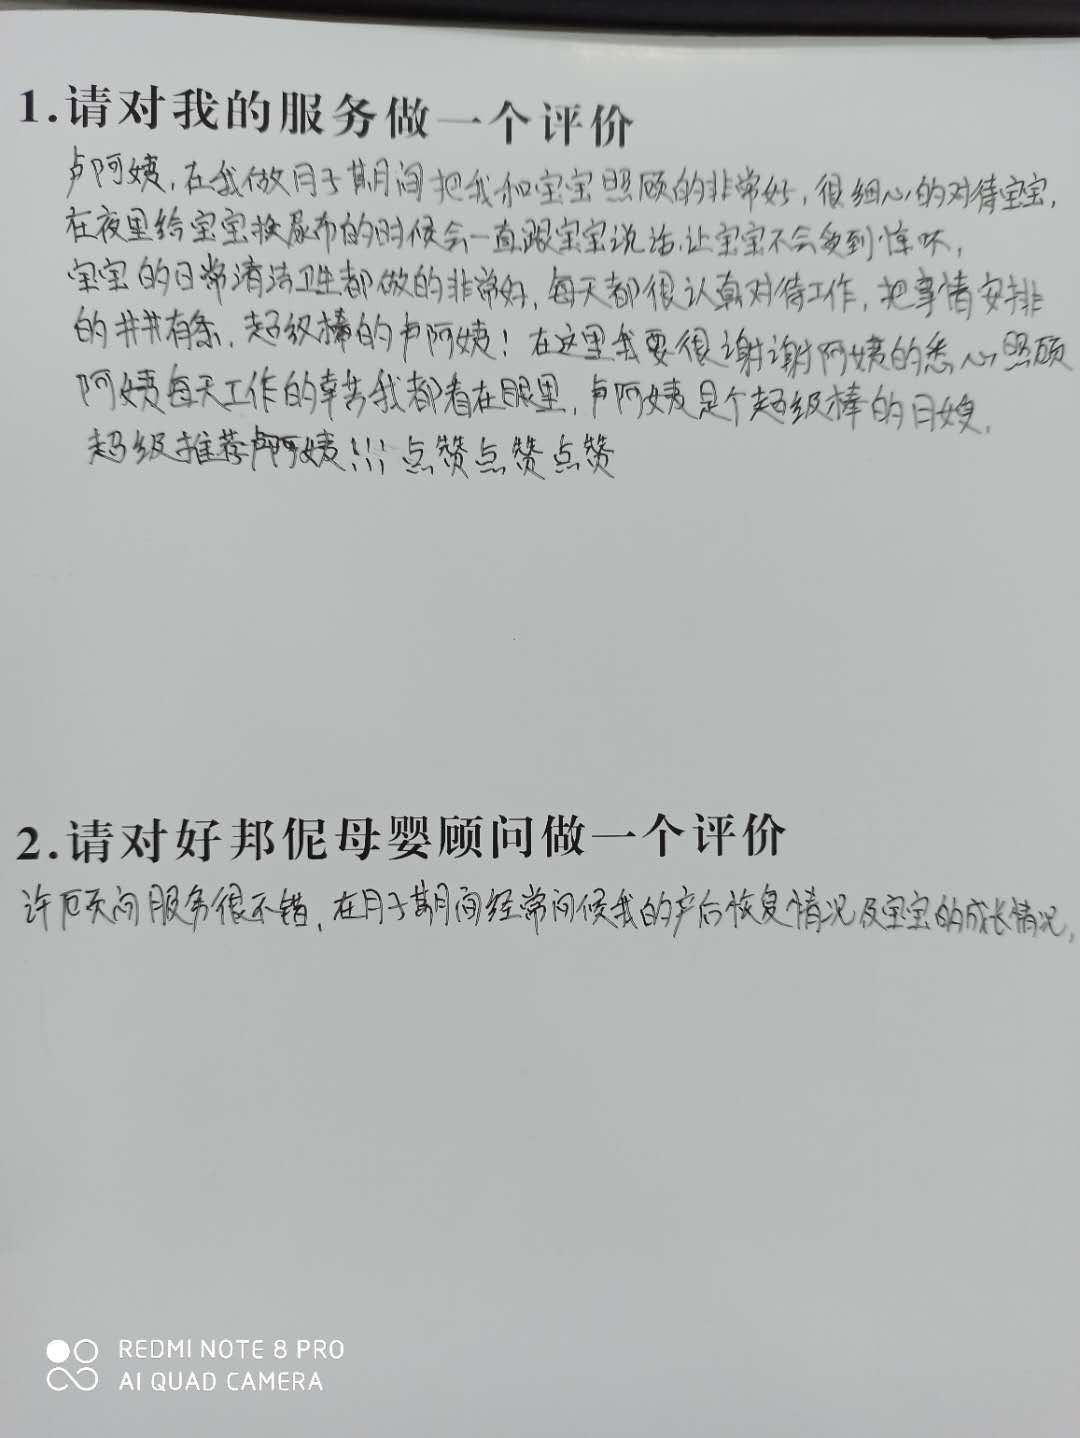 1.请对我的服务做一个评价
卢阿姨,在我做月子期间把我和宝宝照顾的非常好,很细心的对待宝宝,
在夜里给宝宝换尿布的时候会一直跟宝宝说话,让宝宝不会受到惊吓,
宝宝的日常清洁卫生都做的非常好,每天都很认真对待工作,把事情安排
的井井有条,超级棒的卢阿姨!在这里我要很谢谢阿姨的悉心照顾
阿姨每天工作的辛苦我都看在眼里,卢阿姨是个超级棒的月嫂,
超级推荐卢阿姨!!!点赞点赞点赞
2.请对好邦伲母婴顾问做一个评价
许顾问服务很不错,在月子期间经常问候我的产后恢复情况及宝宝的成长情况,
REDMI NOTE 8 PRO
AI QUAD CAMERA